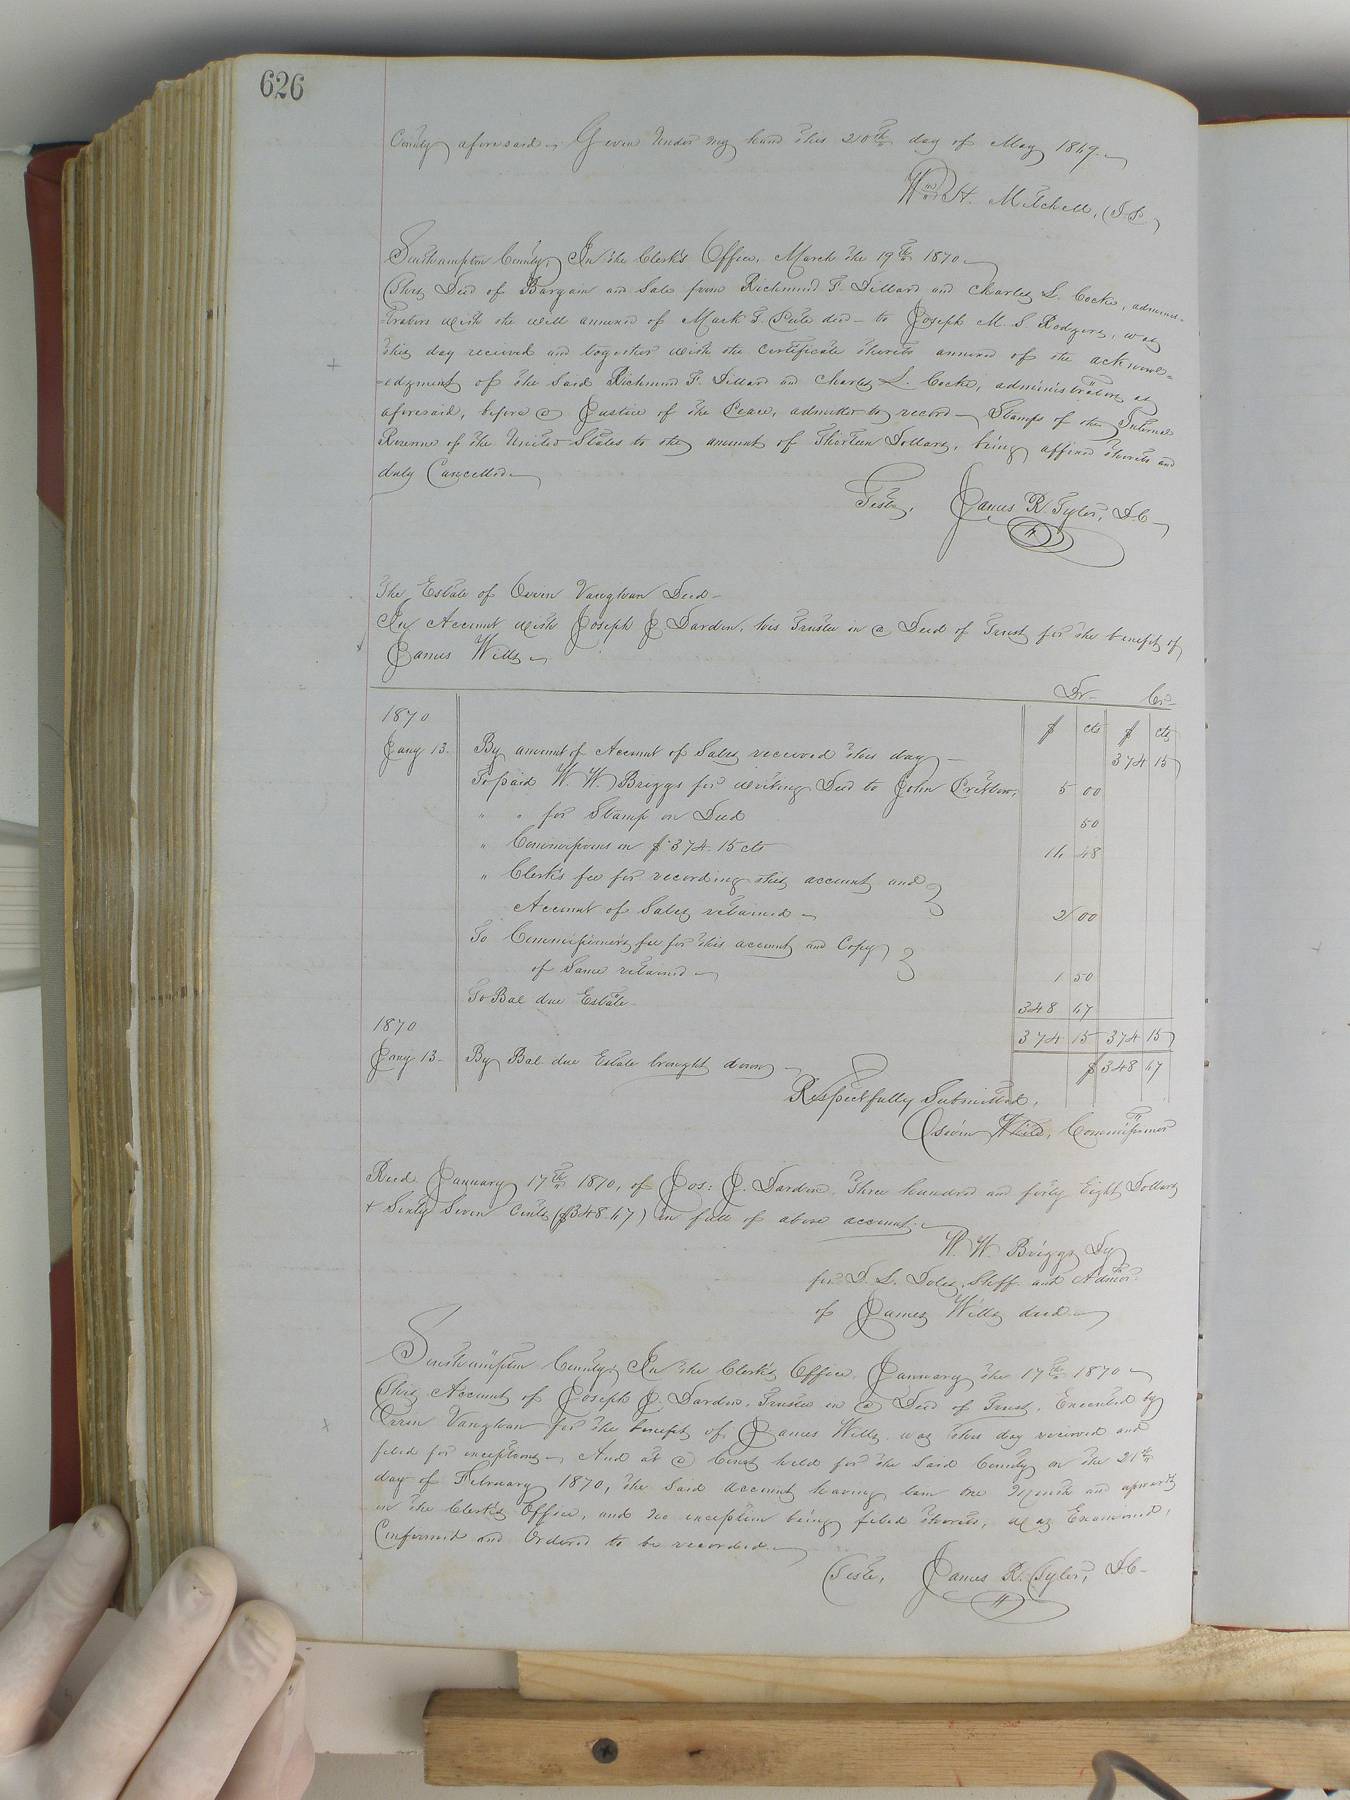 626
County aforesaid. Given Under my hand this 20th day of May 1869.
Wm H. Mitchell, J. P.
Southampton County, In the Clerk's Office, March the 19th 1870
This Deed of Bargain and Sale from Richmond F. Dillard and Charles L. Cocke, adminis-
-trators with the will annexed of Mark T. Pete decd - to Joseph M. S. Rodgers, was
this day received and together with the certificate thereto annexed of the acknowl-
-edgment of the said Richmond F. Dillard and Charles L. Cocke, administrators as
aforesaid, before a Justice of the Peace, admitted to record - Stamps of the Internal
Revenue of the United States to the amount of Thirteen Dollars, being affixed thereto and
duly Cancelled
Teste, James R. Tyler, D.C.
The Estate of Orrin Vaughan Decd -
In Account with Joseph J. Darden, his Trustee in a Deed of Trust for the benefit of
James Wills
Dr - Cr -
1870 $ cts $ cts
Jany 13. By amount of Account of Sales received this day 374 15
To paid W. W. Briggs for writing Deed to John Pretlow, 5 00
" " for Stamp on Deed 50
" Commissions on $374.15 cts 16 48
" Clerk's fee for recording this account and
Account of Sales returned 2 00
To Commissioner's fee for this account and Copy
of Same returned 1 50
To Bal due Estate 348 67
1870 374 15 374 15
Jany 13 - By Bal due Estate brought down $348 67
Respectfully Submitted,
Oswin White, Commissioner
Recd January 17th 1870, of Jos: J. Darden, Three hundred and forty Eight Dollars
& Sixty Seven cents ($348.67) in full of above account.
W. W. Briggs Dy
for D. L. Doles, Shff. and Admor.
of James Wills decd.
Southampton County, In the Clerk's Office, January the 17th 1870
This Account of Joseph J. Darden, Trustee in a Deed of Trust, Executed by
Orrin Vaughan for the benefit of James Wills, was this day received and
filed for exceptions. And at a Court held for the Said County on the 21st
day of February 1870, the said account having lain one Month and upwards
in the Clerk's Office, and no exception being filed thereto, was Examined,
Confirmed and Ordered to be recorded.
Teste, James R. Tyler, D.C.